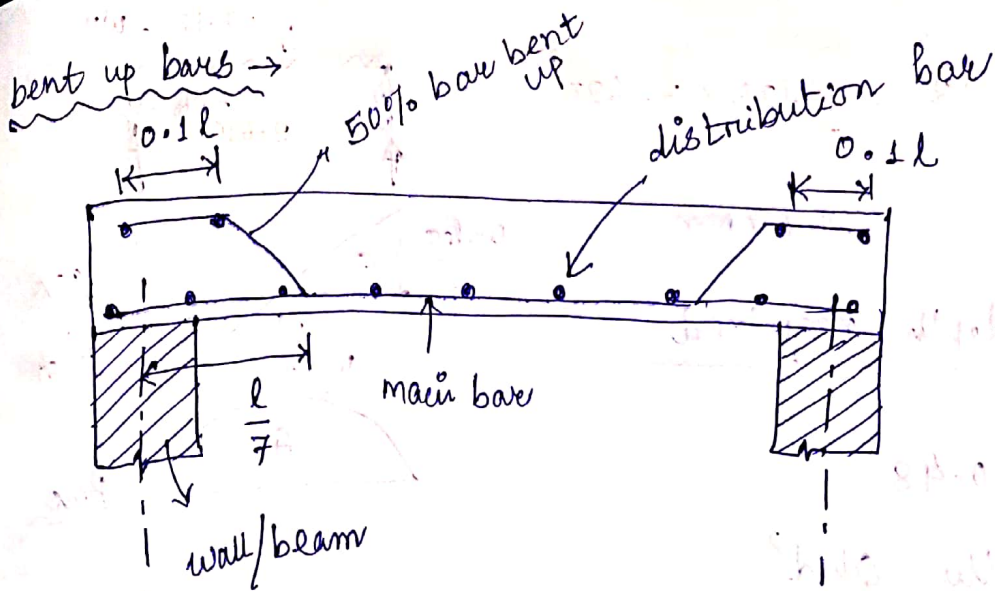 bent up bars →
0.1 l
50% bar bent
up
distribution bar
0.1 l
main bar
l/7
wall/beam